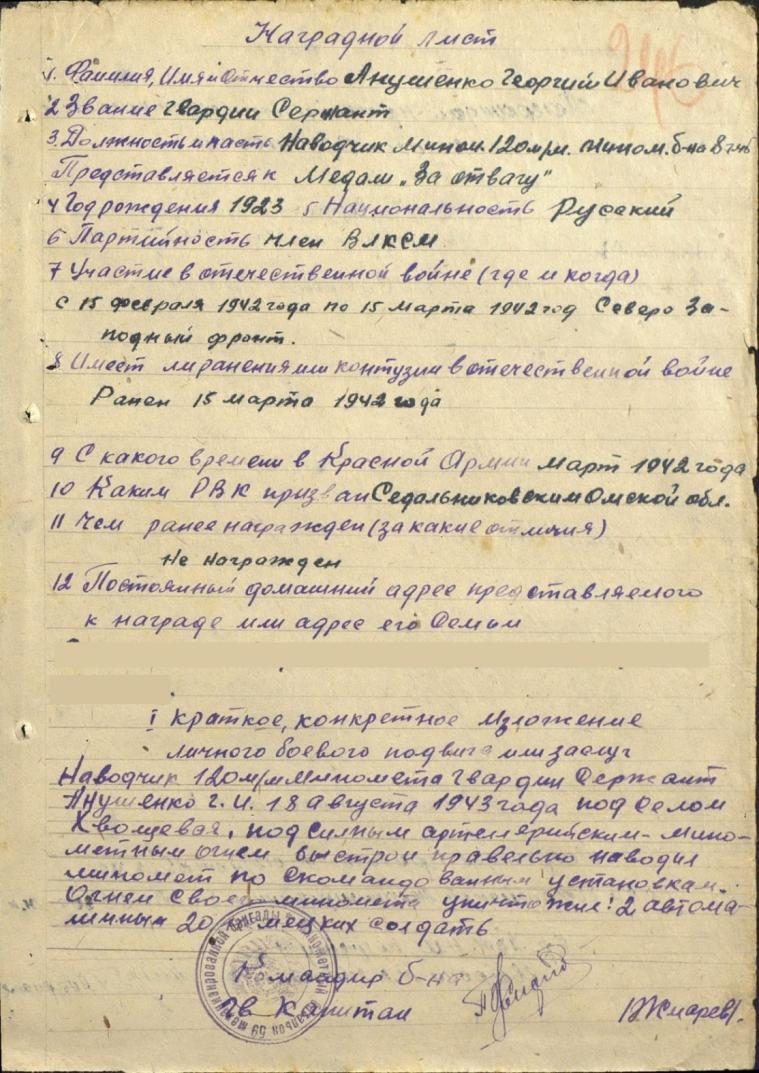 Наградной лист
1. Фамилия, Имя и Отчество Янушенко Георгий Иванович
2 Звание Гвардии Сержант
3. Должность и часть Наводчик Мином. 120м/м. Мином. б-на 8
Представляется к Медали „За отвагу"
4 Год рождения 1923 5 Национальность Русский
6 Партийность член ВЛКСМ
7 Участие в отечественной войне (где и когда)
с 15 февраля 1942 года по 15 марта 1942 год Северо За-
подный фронт.
8 Имеет ли ранения или контузии в отечественной войне
Ранен 15 марта 1942 года
9 С какого времени в Красной Армии март 1942 года
10 Каким РВК призван Седельниковским Омской обл.
11 Чем ранее награжден (за какие отличия)
Не награжден
12 Постоянный домашний адрес представляемого
к награде или адрес его Семьи
I краткое, конкретное Изложение
личного боевого подвига или заслуг
Наводчик 120м/м Миномета Гвардии Сержант
Янушенко Г. И. 18 августа 1943 года под Селом
Хвощевая, под Силным артелерийским- мино-
метным огнем быстрои правельно наводил
миномет по Скомандованным установкам.
Огнем Своего миномета уничтожил: 2 автома-
шины и 20 мецких солдать
Командир б-на
Гв Капитан